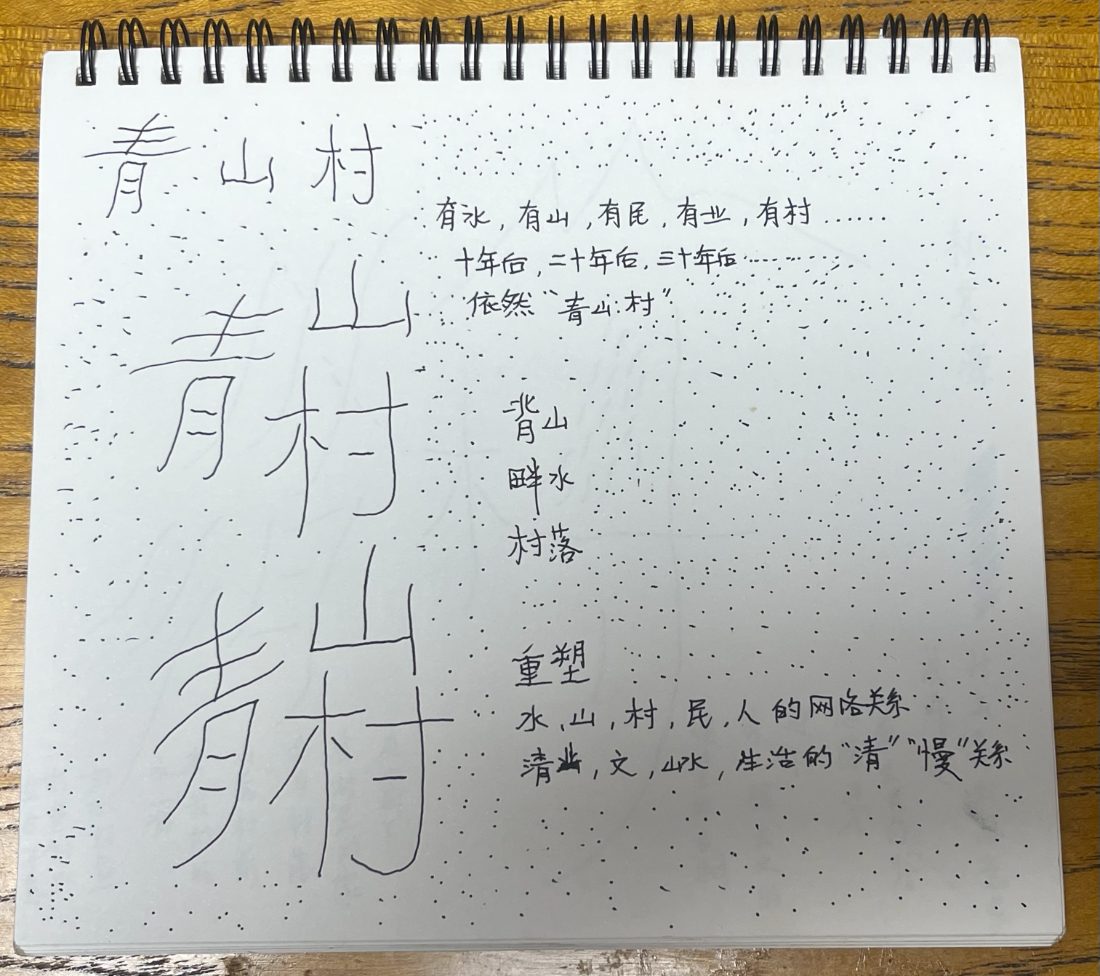 青山村
有水,有山,有民,有业,有村……
十年后,二十年后,三十年后………
依然“青山村”
青山村
背山
畔水
村落
青山村
重塑
水,山,村,民,人的网络关系
清业,文,山水,生活的“清”“慢”关系